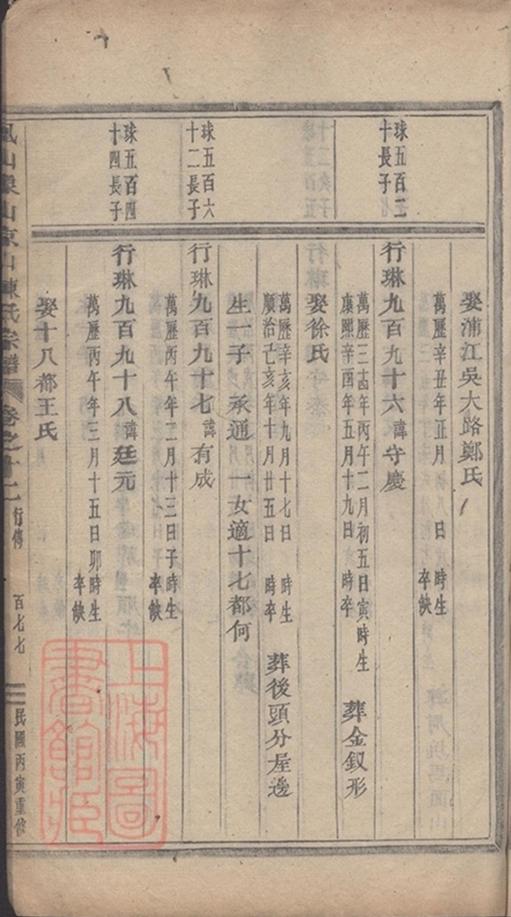 娶浦江吳大路鄭氏
萬歷辛丑年正月初八日　時生
卒缺
球五百二
十長子
行琳九百九十六諱守慶
萬歷三十四年丙午二月初五日寅時生
康熙辛酉年五月十九日　時卒
葬金釵形
娶徐氏
萬歷辛亥年九月十七日　時生
順治己亥年十月廿五日　時卒
葬後頭分屋邊
生一子　承通　一女適十七都何
球五百六
十二長子
行琳九百九十七諱有成
萬歷丙午年二月十三日子時生
卒缺
球五百四
十四長子
行琳九百九十八諱廷元
萬歷丙午年三月十五日卯時生
卒缺
娶十八都王氏
山象山京山陳氏宗譜　卷之十二　行傳　百七七　民國丙寅重修
上海圖
書館藏